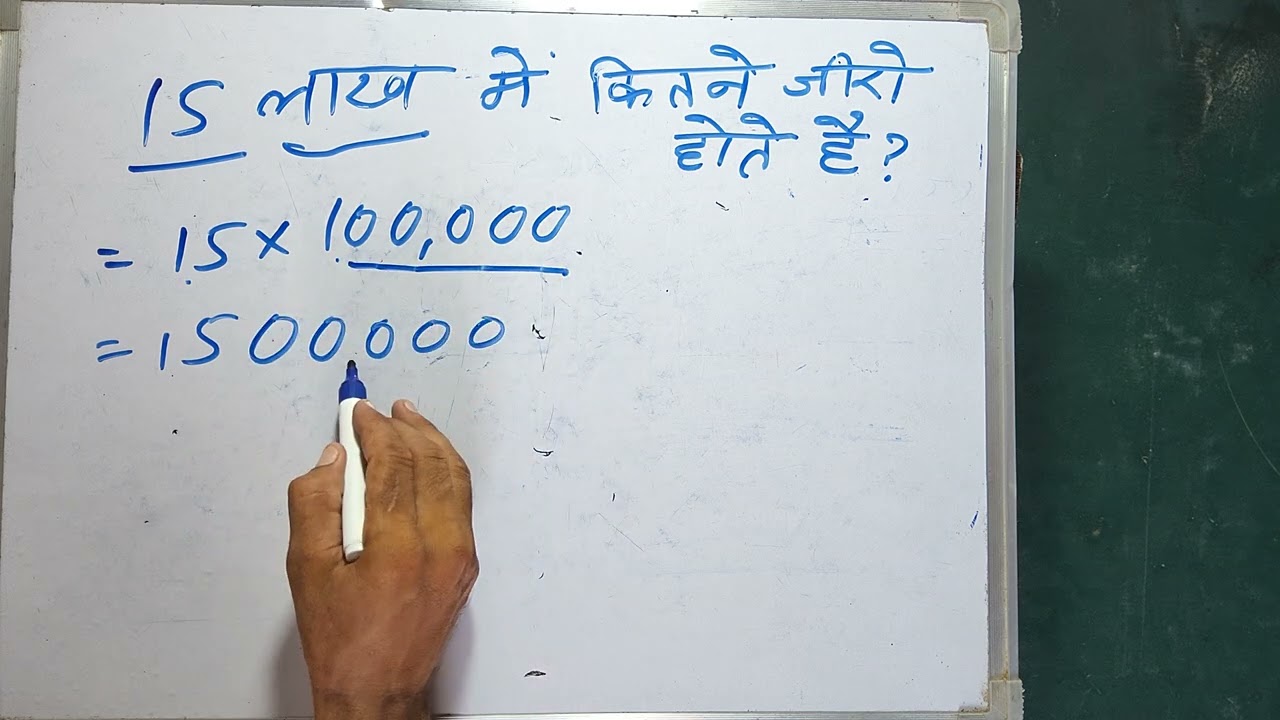 15 लाख में कितने जीरो
होते है?
= 15 × 100,000
= 1500000